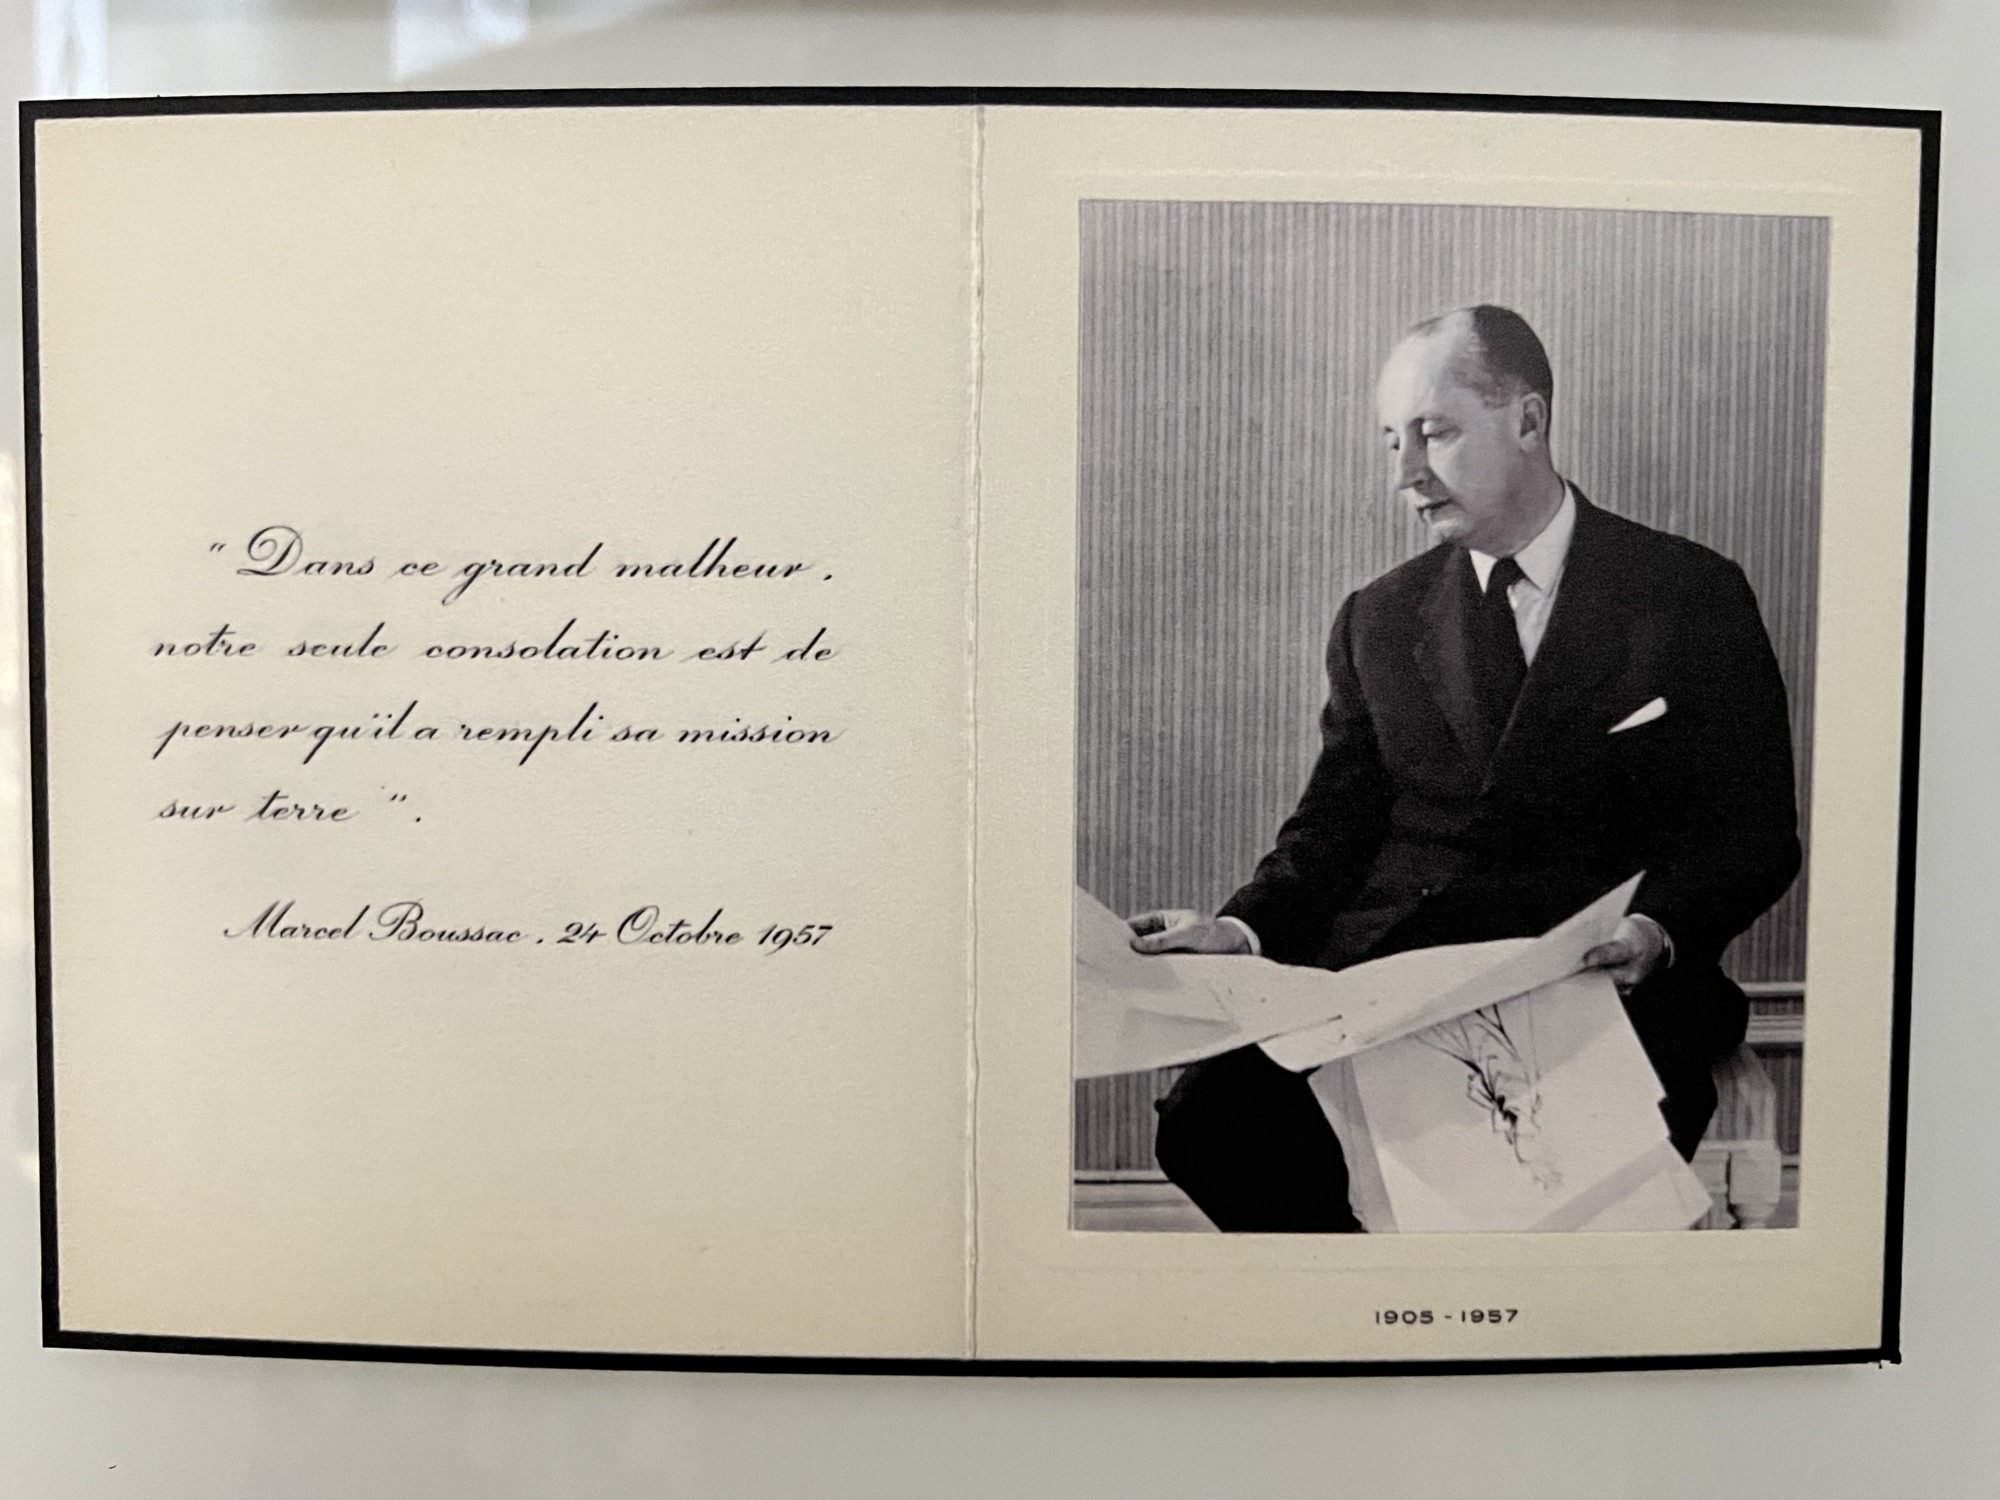 " Dans ce grand malheur,
notre seule consolation est de
penser qu'il a rempli sa mission
sur terre ".
Marcel Boussac, 24 Octobre 1957
1905 - 1957